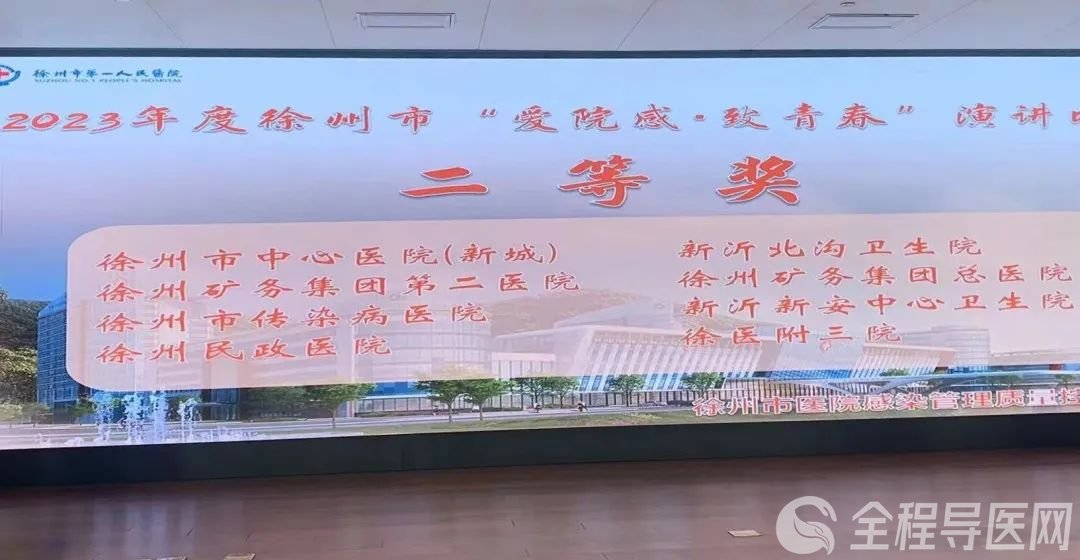 徐州市第一人民醫院
XUZHOU NO.1 PEOPLE'S HOSPITAL
2023年度徐州市“爱院感·致青春”演讲
二等奖
徐州市中心医院(新城)
徐州矿务集团第二医院
徐州市传染病医院
徐州民政医院
新沂北沟卫生院
徐州矿务集团总医院
新沂新安中心卫生院
徐医附三院
徐州市医院感染管理质量控
全程导医网